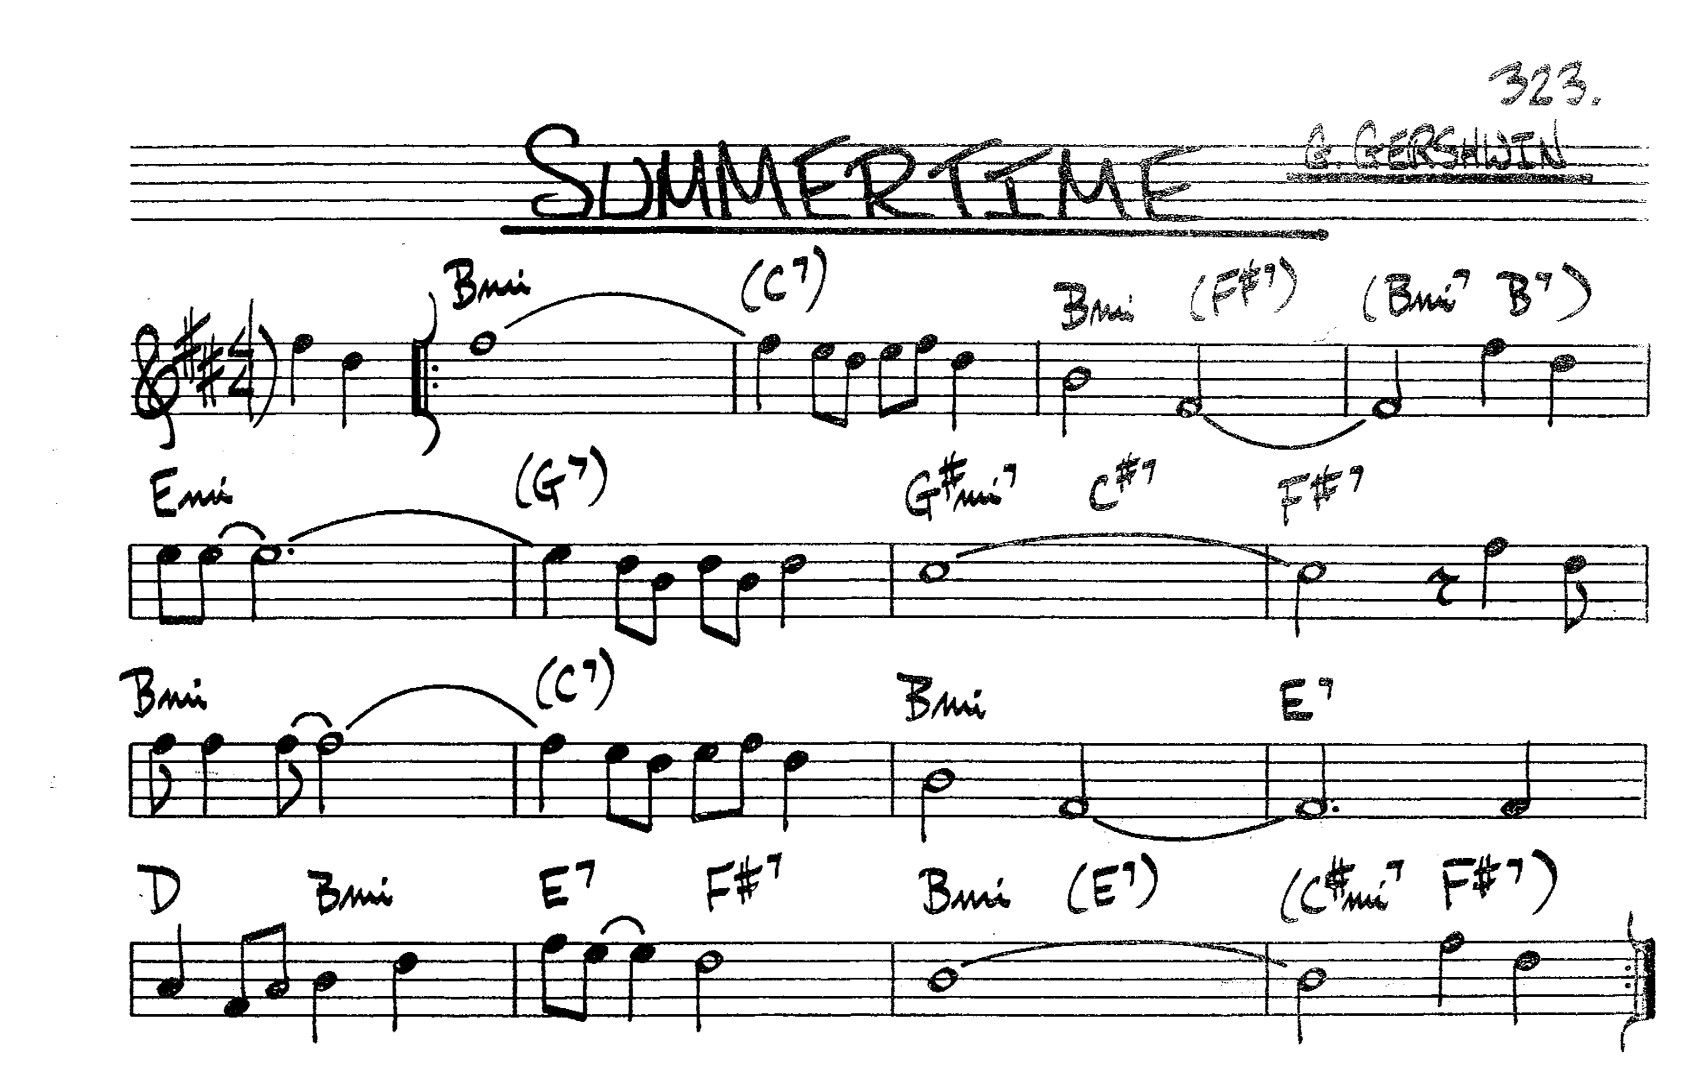 323.
SUMMERTIME
G. GERSHWIN
Bmi (C7) Bmi (F#7) (Bmi7 B7)
4/4
Emi (G7) G#mi7 C#7 F#7
Bmi (C7) Bmi E7
D Bmi E7 F#7 Bmi (E7) (C#mi7 F#7)